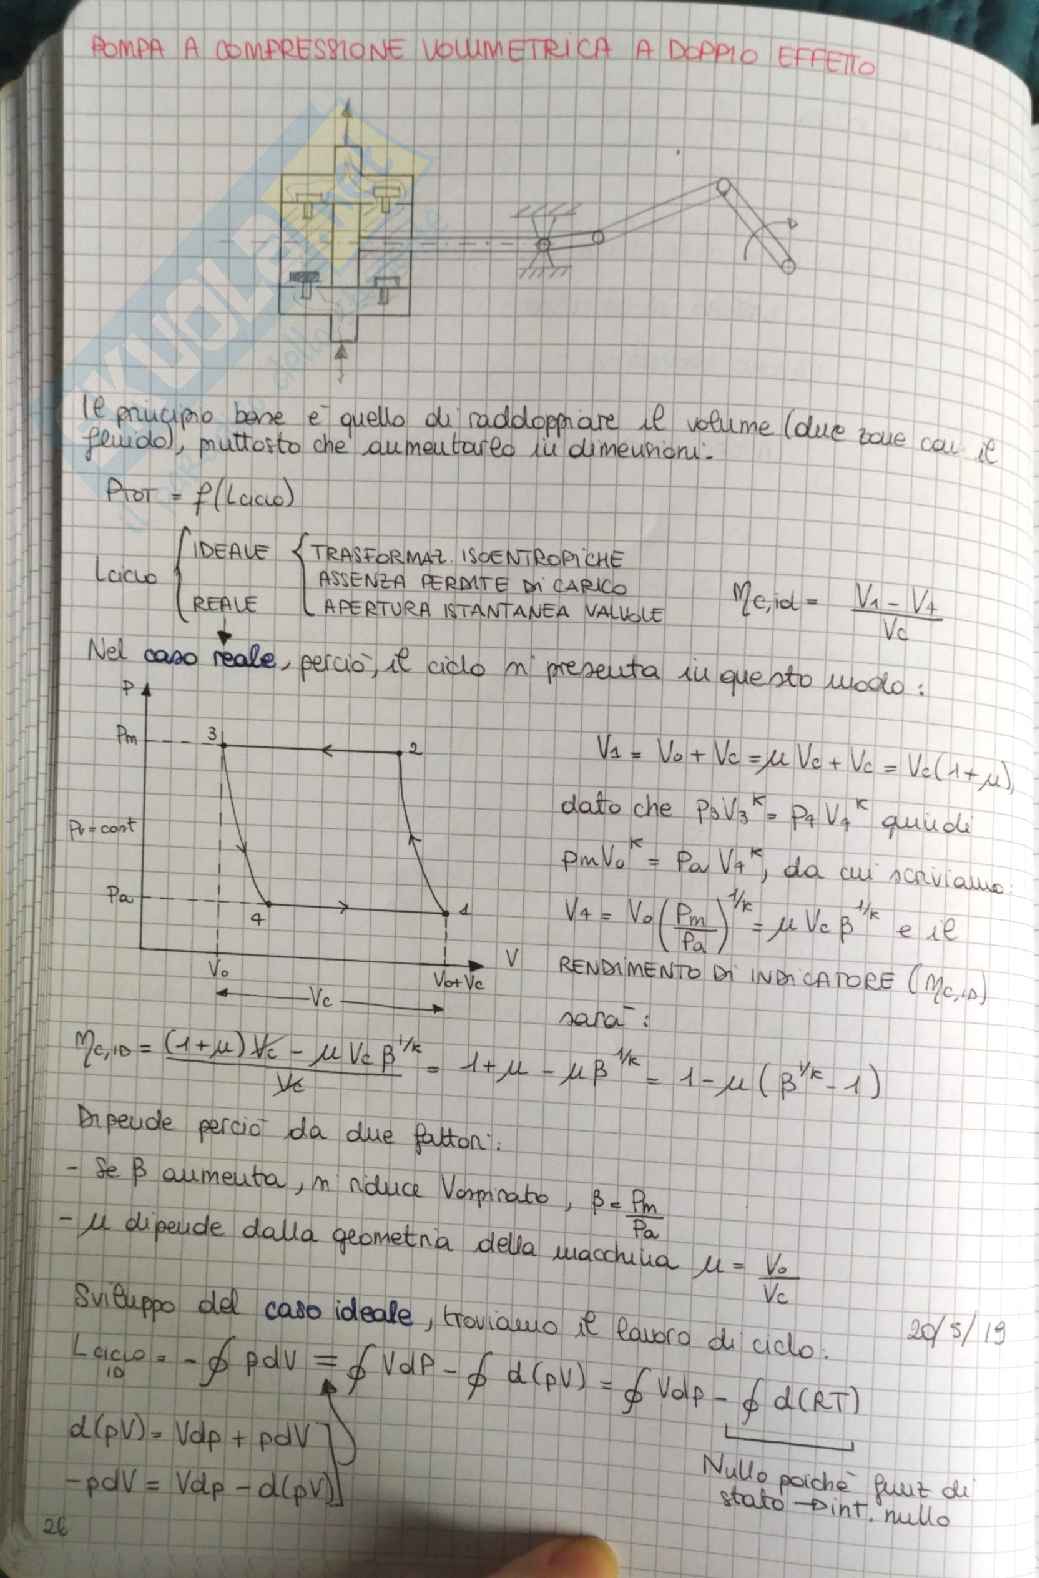 POMPA A COMPRESSIONE VOLUMETRICA A DOPPIO EFFETTO
SKUOLA.net
Il principio base è quello di raddoppiare il volume (due zone con il
fluido), piuttosto che aumentarlo in dimensioni.
PTOT = f(Lciclo)
Lciclo { IDEALE { TRASFORMAZ. ISOENTROPICHE
ASSENZA PERDITE DI CARICO
REALE APERTURA ISTANTANEA VALVOLE
ηc,id = (V1 - V4) / Vc
Nel caso reale, perciò, il ciclo si presenta in questo modo:
P
Pm
3
2
Pr = cost
Pa
4
1
V0
V0+Vc
V
Vc
V1 = V0 + Vc = μ Vc + Vc = Vc (1+μ),
dato che p3V3^k = p4V4^k quindi
pmV0^k = pa V4^k, da cui scriviamo:
V4 = V0 (Pm/Pa)^1/k = μ Vc β^1/k e il
RENDIMENTO DI INDICATORE (ηc,ID)
sarà:
ηc,ID = ((1+μ) Vc - μ Vc β^1/k) / Vc = 1+μ - μβ^1/k = 1 - μ (β^1/k - 1)
Dipende perciò da due fattori:
- Se β aumenta, si riduce Vaspirato, β = Pm/Pa
- μ dipende dalla geometria della macchina μ = V0/Vc
20/5/19
Sviluppo del caso ideale, troviamo il lavoro di ciclo:
Lciclo ID = -∮ pdV = ∮ Vdp - ∮ d(pV) = ∮ Vdp - ∮ d(RT)
d(pV) = Vdp + pdV
-pdV = Vdp - d(pV)
Nullo poichè funz di
stato → int. nullo
26